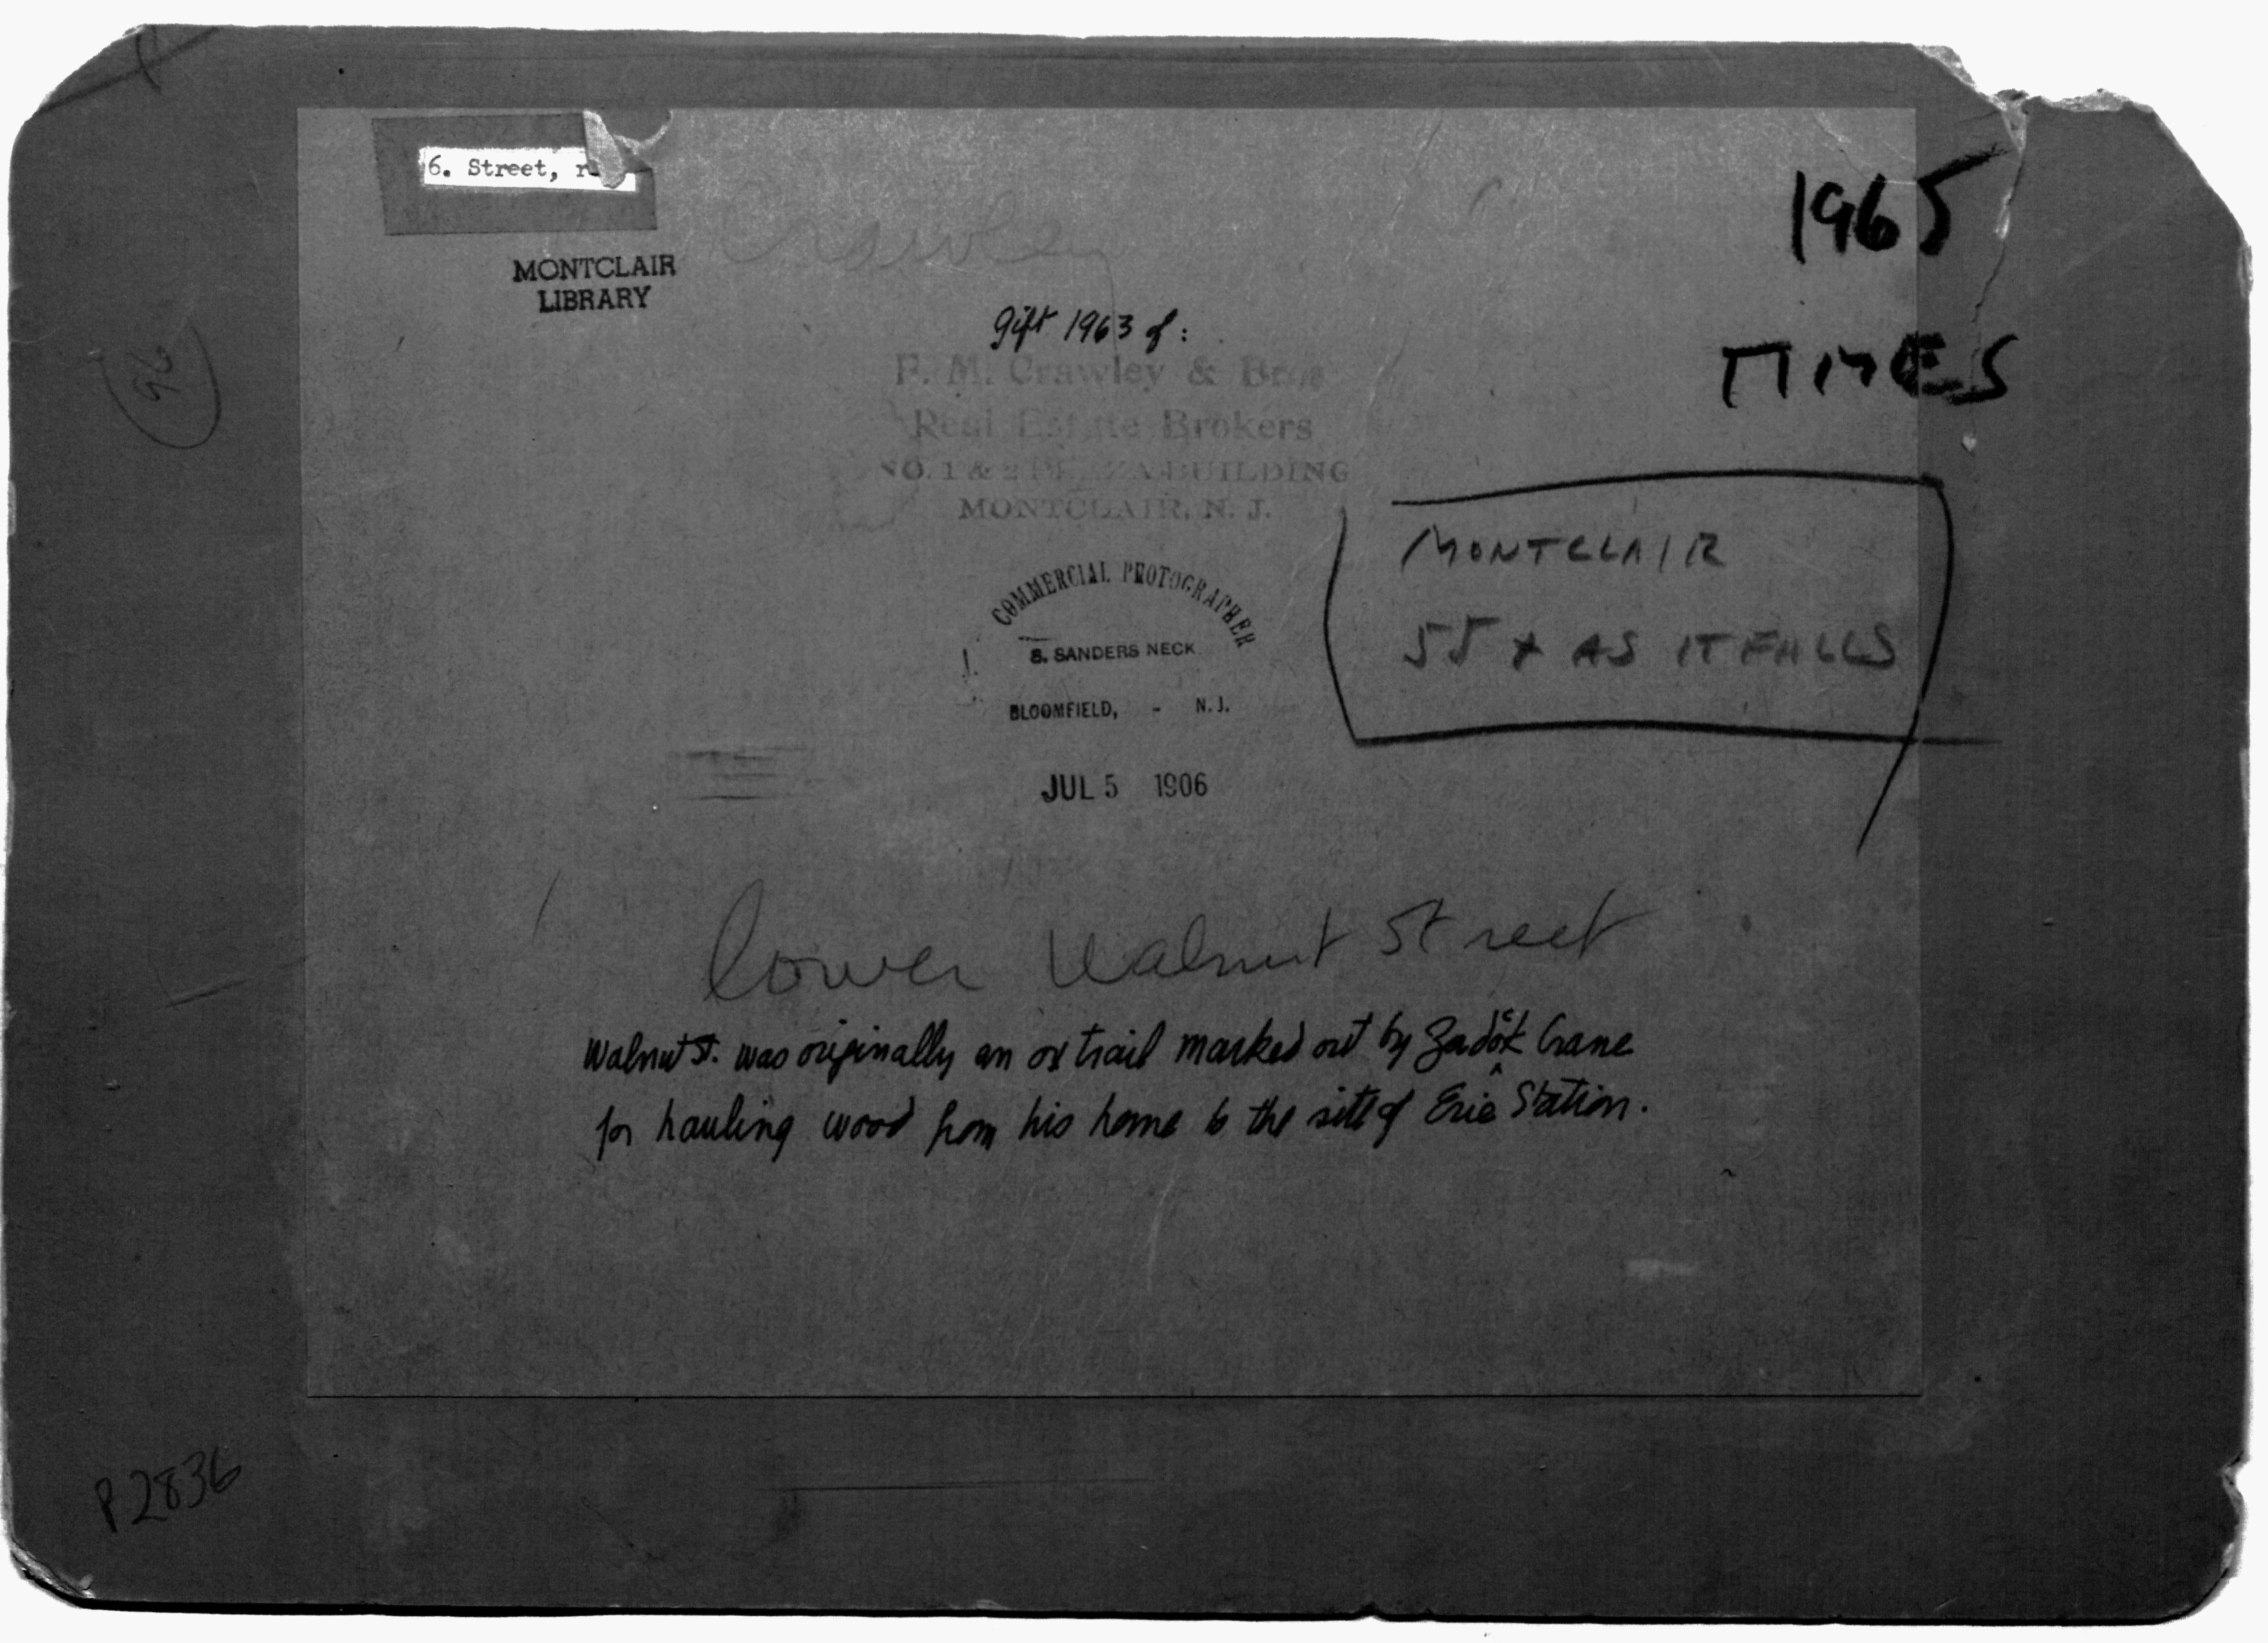 6. Street,
MONTCLAIR
LIBRARY
Crawley
1965
TIMES
gift 1963 of:
F. M. Crawley & Bros
Real Estate Brokers
NO. 1 & 2 PLAZA BUILDING
MONTCLAIR, N. J.
COMMERCIAL PHOTOGRAPHER
S. SANDERS NECK
BLOOMFIELD, - N. J.
JUL 5 1906
MONTCLAIR
55 x AS IT FALLS
96
lower Walnut Street
Walnut St. was originally an ox trail marked out by Zadock Crane
for hauling wood from his home to the site of Erie Station.
P2836